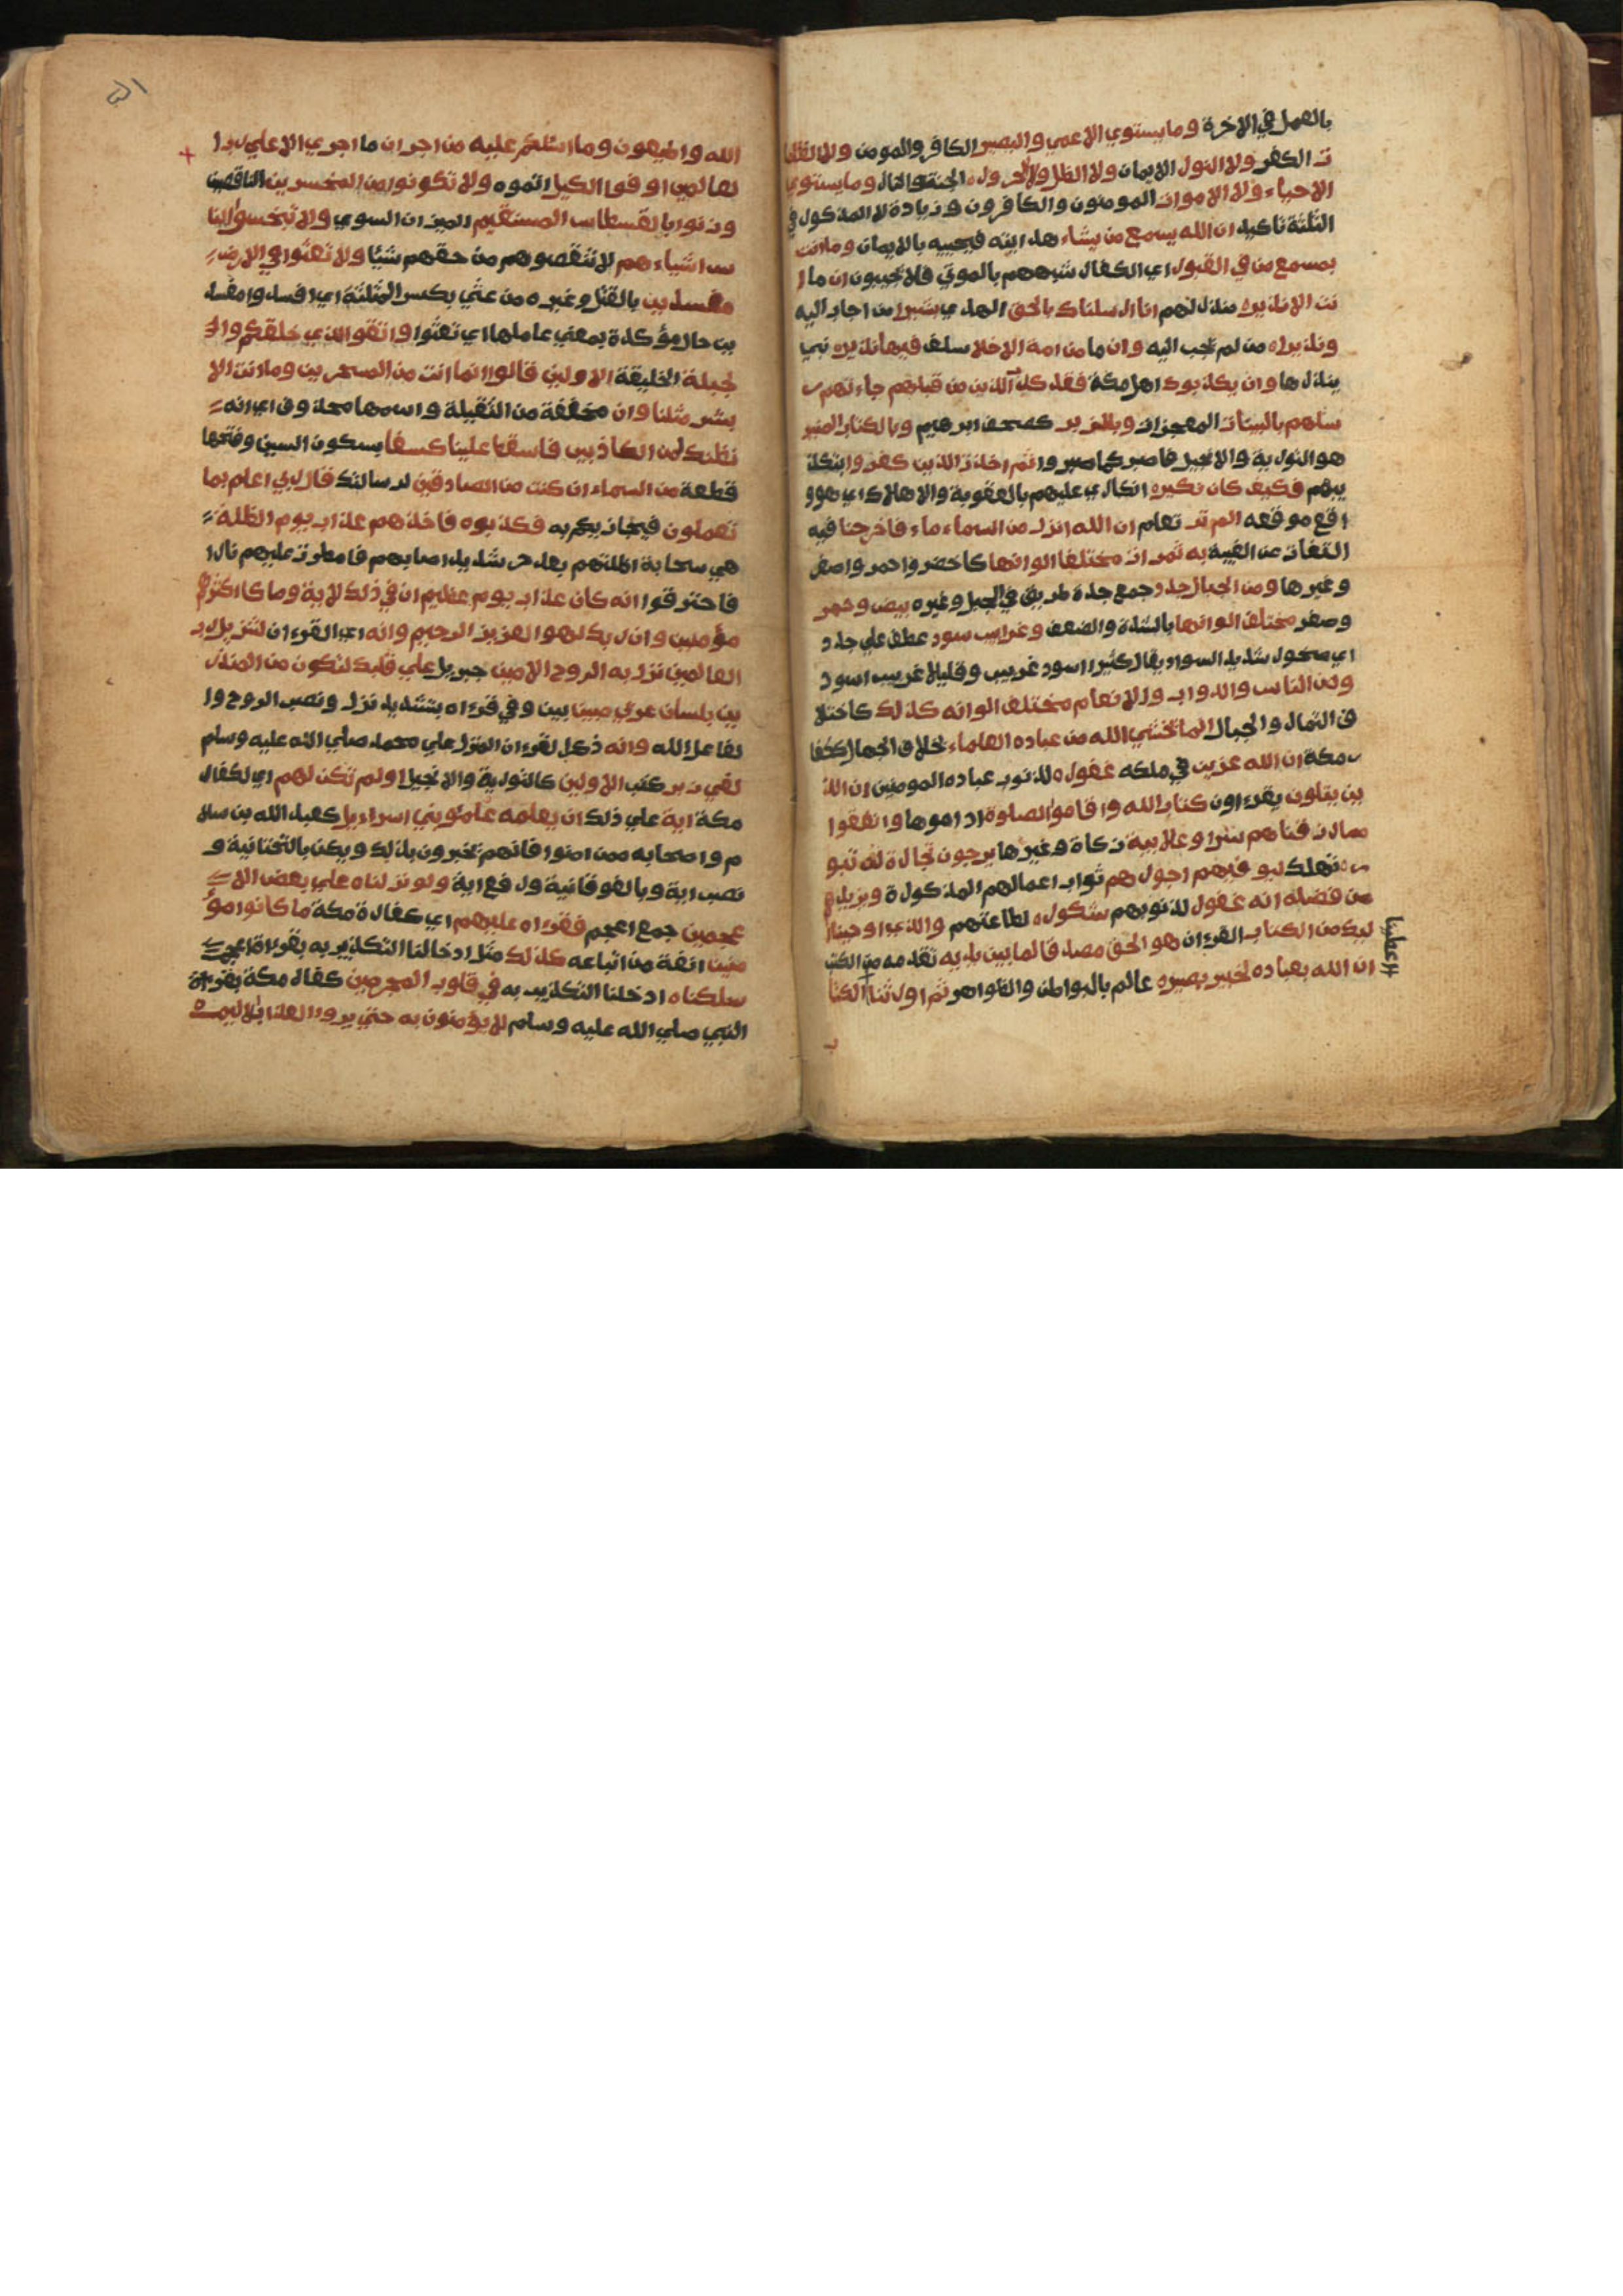 بالعمل في الاخرة وما يستوي الاعمي والبصير الكافر والمومن ولا الظلما
ت الكفر ولا النور الايمان ولا الظل ولا الحرور الجنة والنار وما يستوي
الاحياء ولا الاموات المومنون والكافرون وزيادة لا المذكور في
الثلثة تاكيد ان الله يسمع من يشاء هدايته فيجيبه بالايمان وما انت
بمسمع من في القبور اي الكفار شبههم بالموتي فلا تجيبون ان ما ا
نت الا نذير منذر لهم انا ارسلناك بالحق الهدي بشيرا من اجاب اليه
ونذيرا من لم يجب اليه وان ما من امة الا خلا سلف فيها نذير نبي
ينذرها وان يكذبوك اهل مكة فقد كذب الذين من قبلهم جاءتهم ر
سلهم بالبينات المعجزات وبالزبر كصحف ابرهيم وبالكتاب المنير
هو التورية والانجيل فاصبر كما صبروا ثم اخذت الذين كفروا بتكذ
يبهم فكيف كان نكير انكاري عليهم بالعقوبة والاهلاك اي هو و
اقع موقعه الم تر تعلم ان الله انزل من السماء ماء فاخرجنا فيه
التفات عن الغيبة به ثمرات مختلفا الوانها كاخضر واحمر واصفر
وغيرها ومن الجبال جدد جمع جدة طريق في الجبل وغيره بيض وحمر
وصفر مختلف الوانها بالشدة والضعف وغرابيب سود عطف علي جدد
اي صخور شديد السواد يقال كثيرا اسود غربيب وقليلا غربيب اسود
ومن الناس والدواب والانعام مختلف الوانه كذلك كاختلا
ف الثمار والجبال انما يخشي الله من عباده العلماء بخلاف الجهال ككفا
ر مكة ان الله عزيز في ملكه غفور لذنوب عباده المومنين ان الذ
ين يتلون يقرءون كتاب الله واقاموا الصلوة اداموها وانفقوا
مما رزقناهم سرا وعلانية زكاة وغيرها يرجون تجارة لن تبو
ر تهلك ليوفيهم اجورهم ثواب اعمالهم المذكورة ويزيدهم
من فضله انه غفور لذنوبهم شكور لطاعتهم والذي اوحينا ا
ليك من الكتاب القرءان هو الحق مصدقا لما بين يديه تقدمه من الكتب
ان الله بعباده لخبير بصير عالم بالبواطن والظواهر ثم اورثنا الكتا
اعطينا
ب
الله واطيعون وما اسئلكم عليه من اجر ان ما اجري الا علي رب ا
لعالمين اوفوا الكيل اتموه ولا تكونوا من المخسرين الناقصين
وزنوا بالقسطاس المستقيم الميزان السوي ولا تبخسوا النا
س اشياءهم لا تنقصوهم من حقهم شيا ولا تعثوا في الارض
مفسدين بالقتل وغيره من عثي بكسر المثلثة اي افسد وا مفسد
ين حال مؤكدة بمعني عاملها اي تعثوا واتقوا الذي خلقكم وال
جبلة الخليقة الاولين قالوا انما انت من المسحرين وما انت الا
بشر مثلنا وان مخففة من الثقيلة واسمها محذوف اي انه
نظنك لمن الكاذبين فاسقط علينا كسفا بسكون السين وفتحها
قطعة من السماء ان كنت من الصادقين لرسالتك قال ربي اعلم بما
تعملون فيجازيكم به فكذبوه فاخذهم عذاب يوم الظلة
هي سحابة اظلتهم بعد حر شديد اصابهم فامطرت عليهم نارا
فاحترقوا انه كان عذاب يوم عظيم ان في ذلك لاية وما كان اكثرهم
مؤمنين وان ربك لهو العزيز الرحيم وانه اي القرءان لتنزيل رب
العالمين نزل به الروح الامين جبريل علي قلبك لتكون من المنذر
ين بلسان عربي مبين بين وفي قراءة بتشديد نزل ونصب الروح وا
لفاعل الله وانه ذكر القرءان المنزل علي محمد صلي الله عليه وسلم
لفي زبر كتب الاولين كالتورية والانجيل اولم تكن لهم اي لكفار
مكة اية علي ذلك ان يعلمه علمؤ بني اسراءيل كعبد الله بن سلا
م واصحابه ممن امنوا فانهم يخبرون بذلك ويكن بالتحتانية و
نصب اية وبالفوقانية ورفع اية ولو نزلناه علي بعض الا
عجمين جمع اعجم فقراه عليهم اي كفارة مكة ما كانوا مؤ
منين انفة من اتباعه كذلك مثل ادخالنا التكذيب به بقراءة الاعجمي
سلكناه ادخلنا التكذيب به في قلوب المجرمين كفار مكة بقراءة
النبي صلي الله عليه وسلم لا يؤمنون به حتي يروا العذاب الاليم